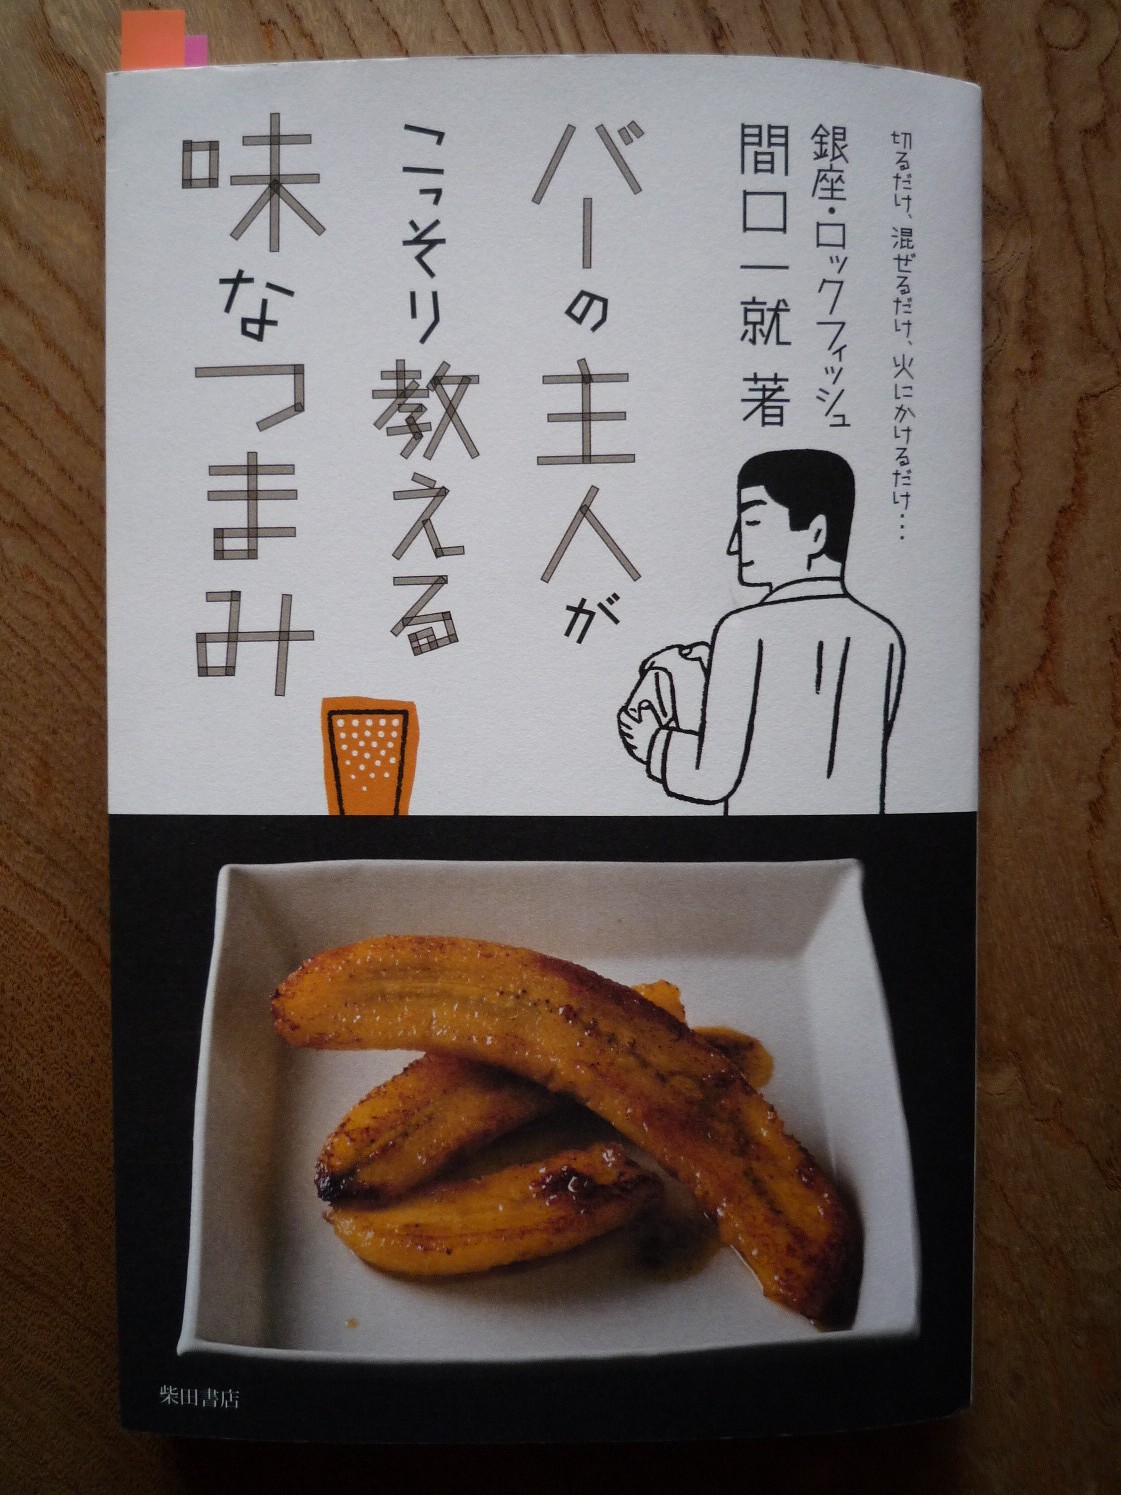 切るだけ、混ぜるだけ、火にかけるだけ…
銀座・ロックフィッシュ
間口一就 著
バーの主人が
こっそり教える
味なつまみ
柴田書店